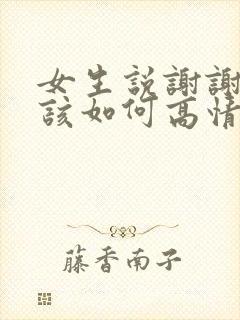 女生説謝謝
該如何高情
藤香南子